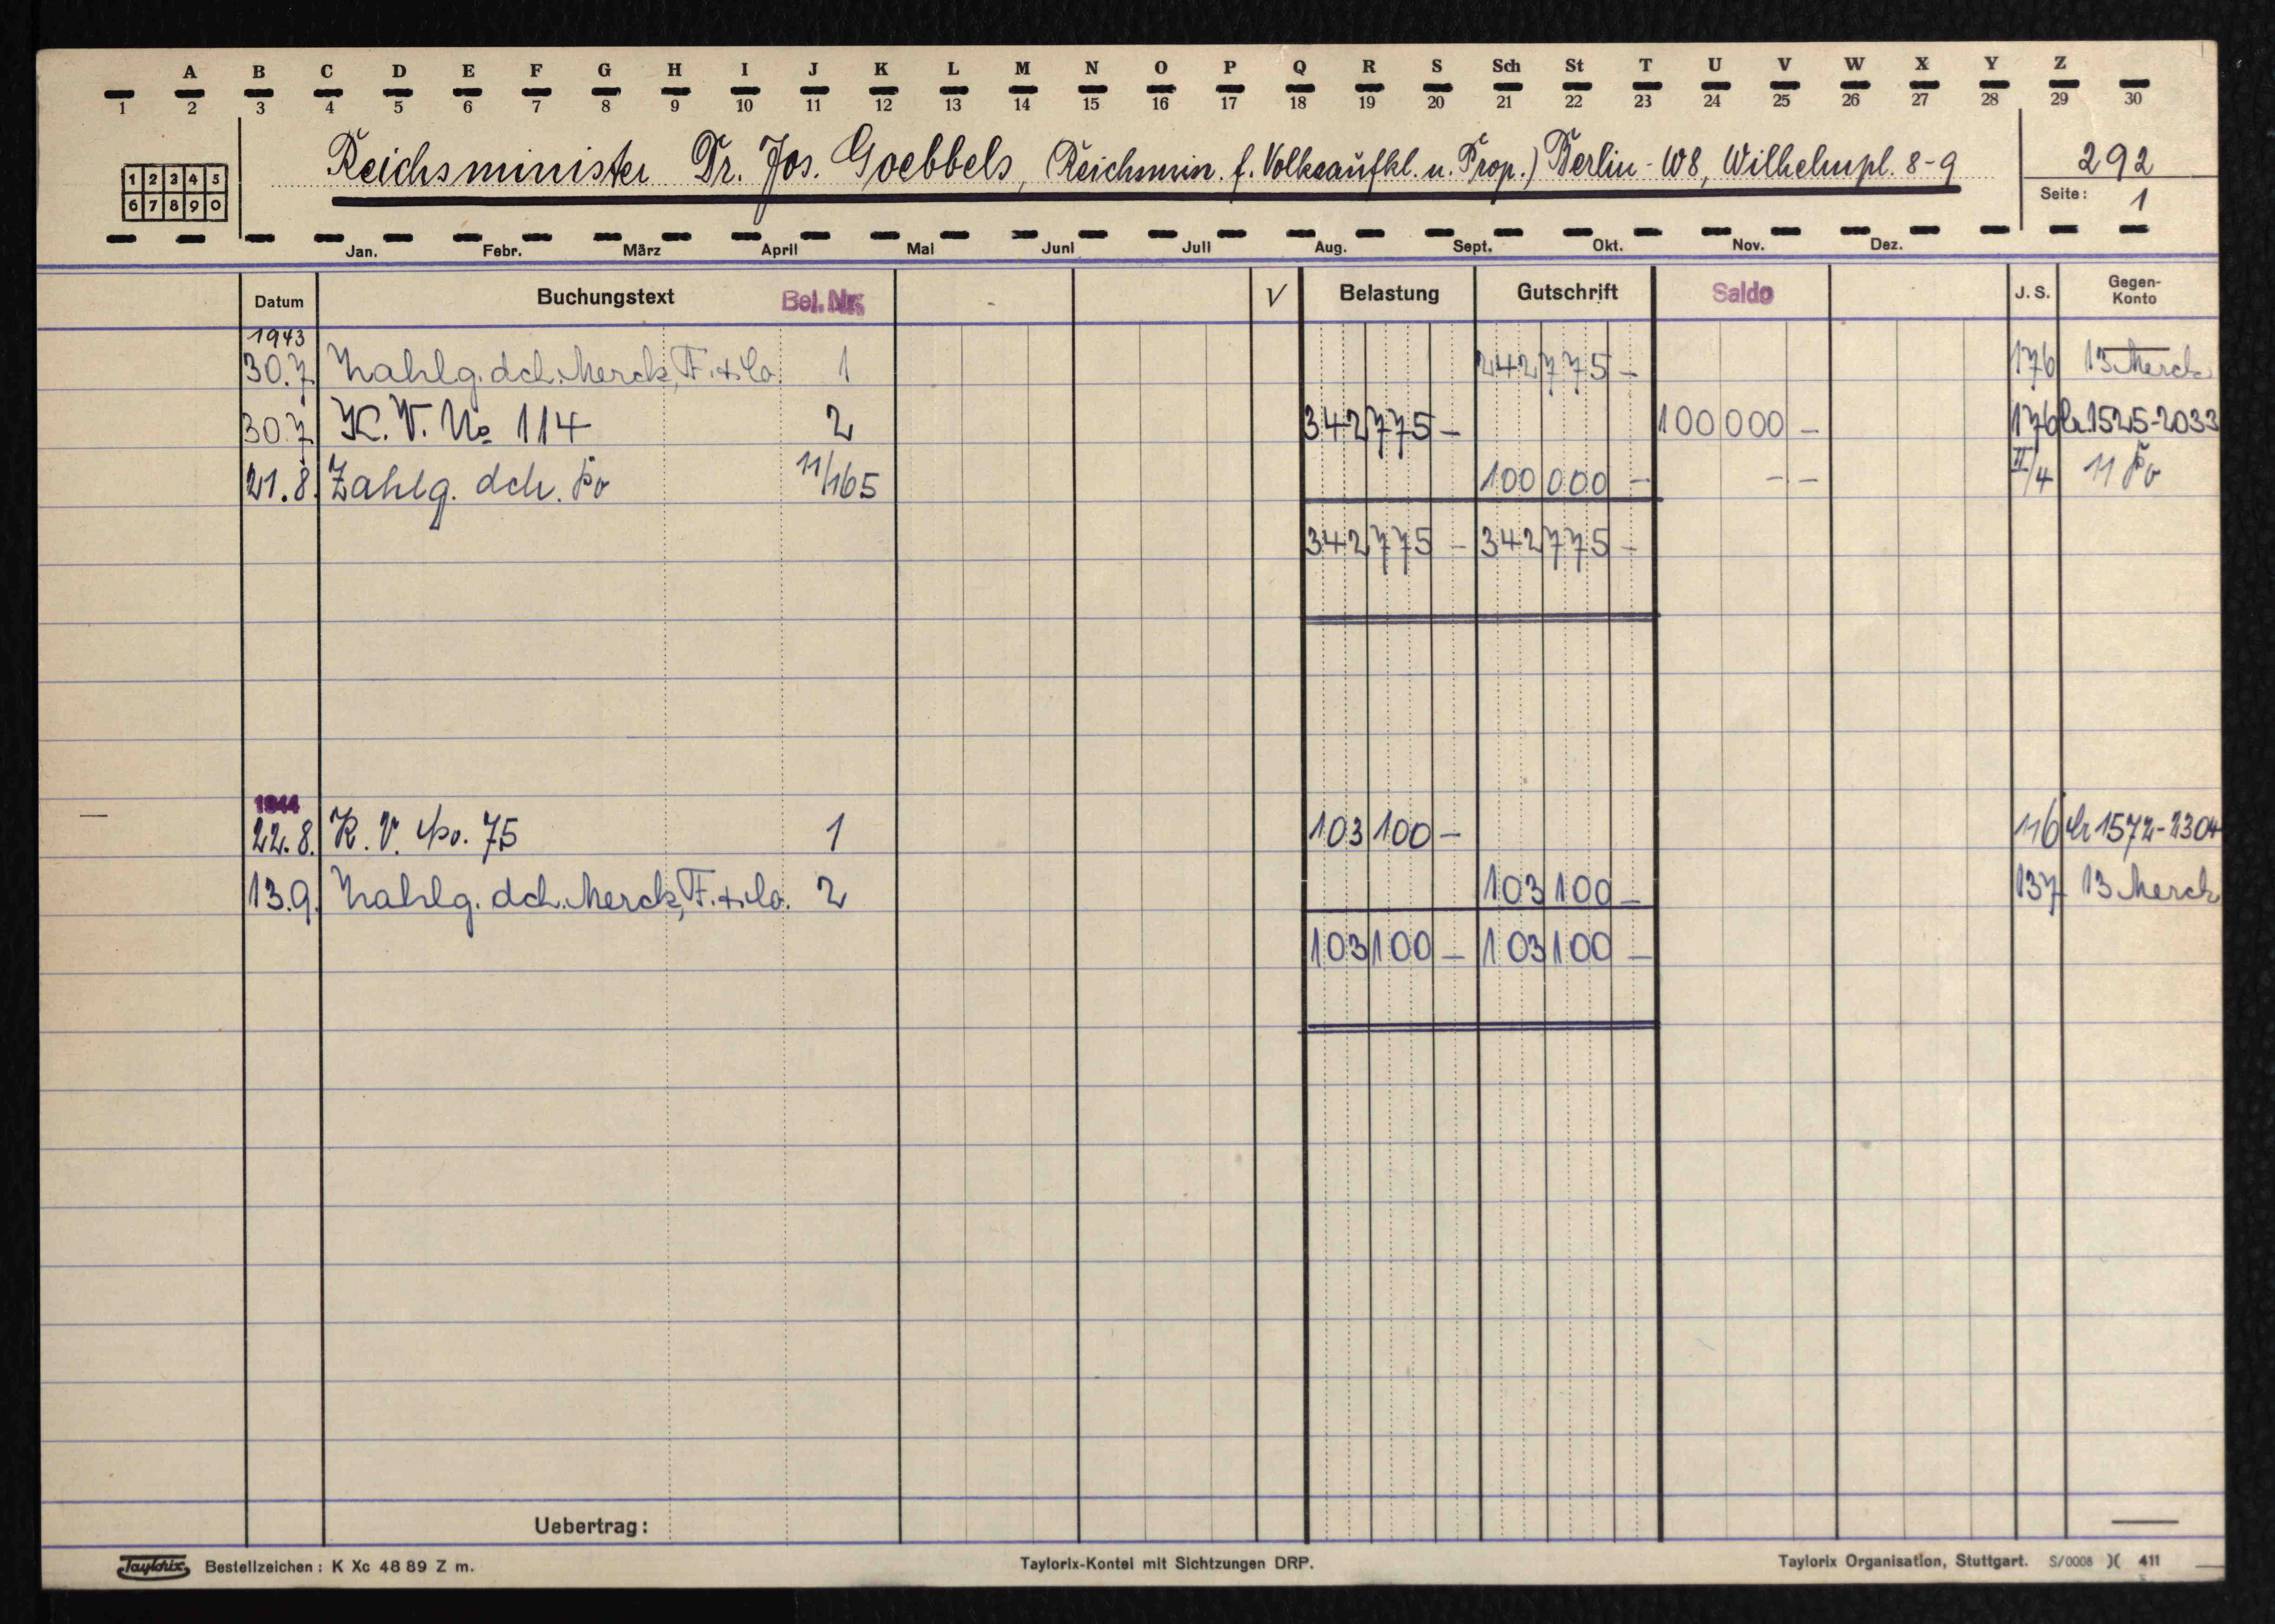 A B C D E F G H I J K L M N O P Q R S Sch St T U V W X Y Z
1 2 3 4 5 6 7 8 9 10 11 12 13 14 15 16 17 18 19 20 21 22 23 24 25 26 27 28 29 30
Reichsminister Dr. Jos. Goebbels, (Reichsmin. f. Volksaufkl. u. Prop.) Berlin-W8, Wilhelmpl. 8-9
292
1 2 3 4 5
6 7 8 9 0
Seite: 1
Jan. Febr. März April Mai Juni Juli Aug. Sept. Okt. Nov. Dez.
Datum Buchungstext Bel. Nr. V Belastung Gutschrift Saldo J. S. Gegen-Konto
1943
30.7. Zahlg. dch. Merck, F. + Co. 1 242 775 – 176 13 Merck
30.7. K. V. No 114 2 342 775 – 100 000 – 176 1525-2033
21.8. Zahlg. dch. Po 11/165 100 000 – – – II/4 11 Po
342 775 – 342 775 –
1944
22.8. K. V. No. 75 1 103 100 – 116 1572-2304
13.9. Zahlg. dch. Merck, F. + Co. 2 103 100 – 137 13 Merck
103 100 – 103 100 –
Uebertrag:
Taylorix Bestellzeichen: K Xc 48 89 Z m. Taylorix-Kontei mit Sichtzungen DRP. Taylorix Organisation, Stuttgart. S/0008 )( 411